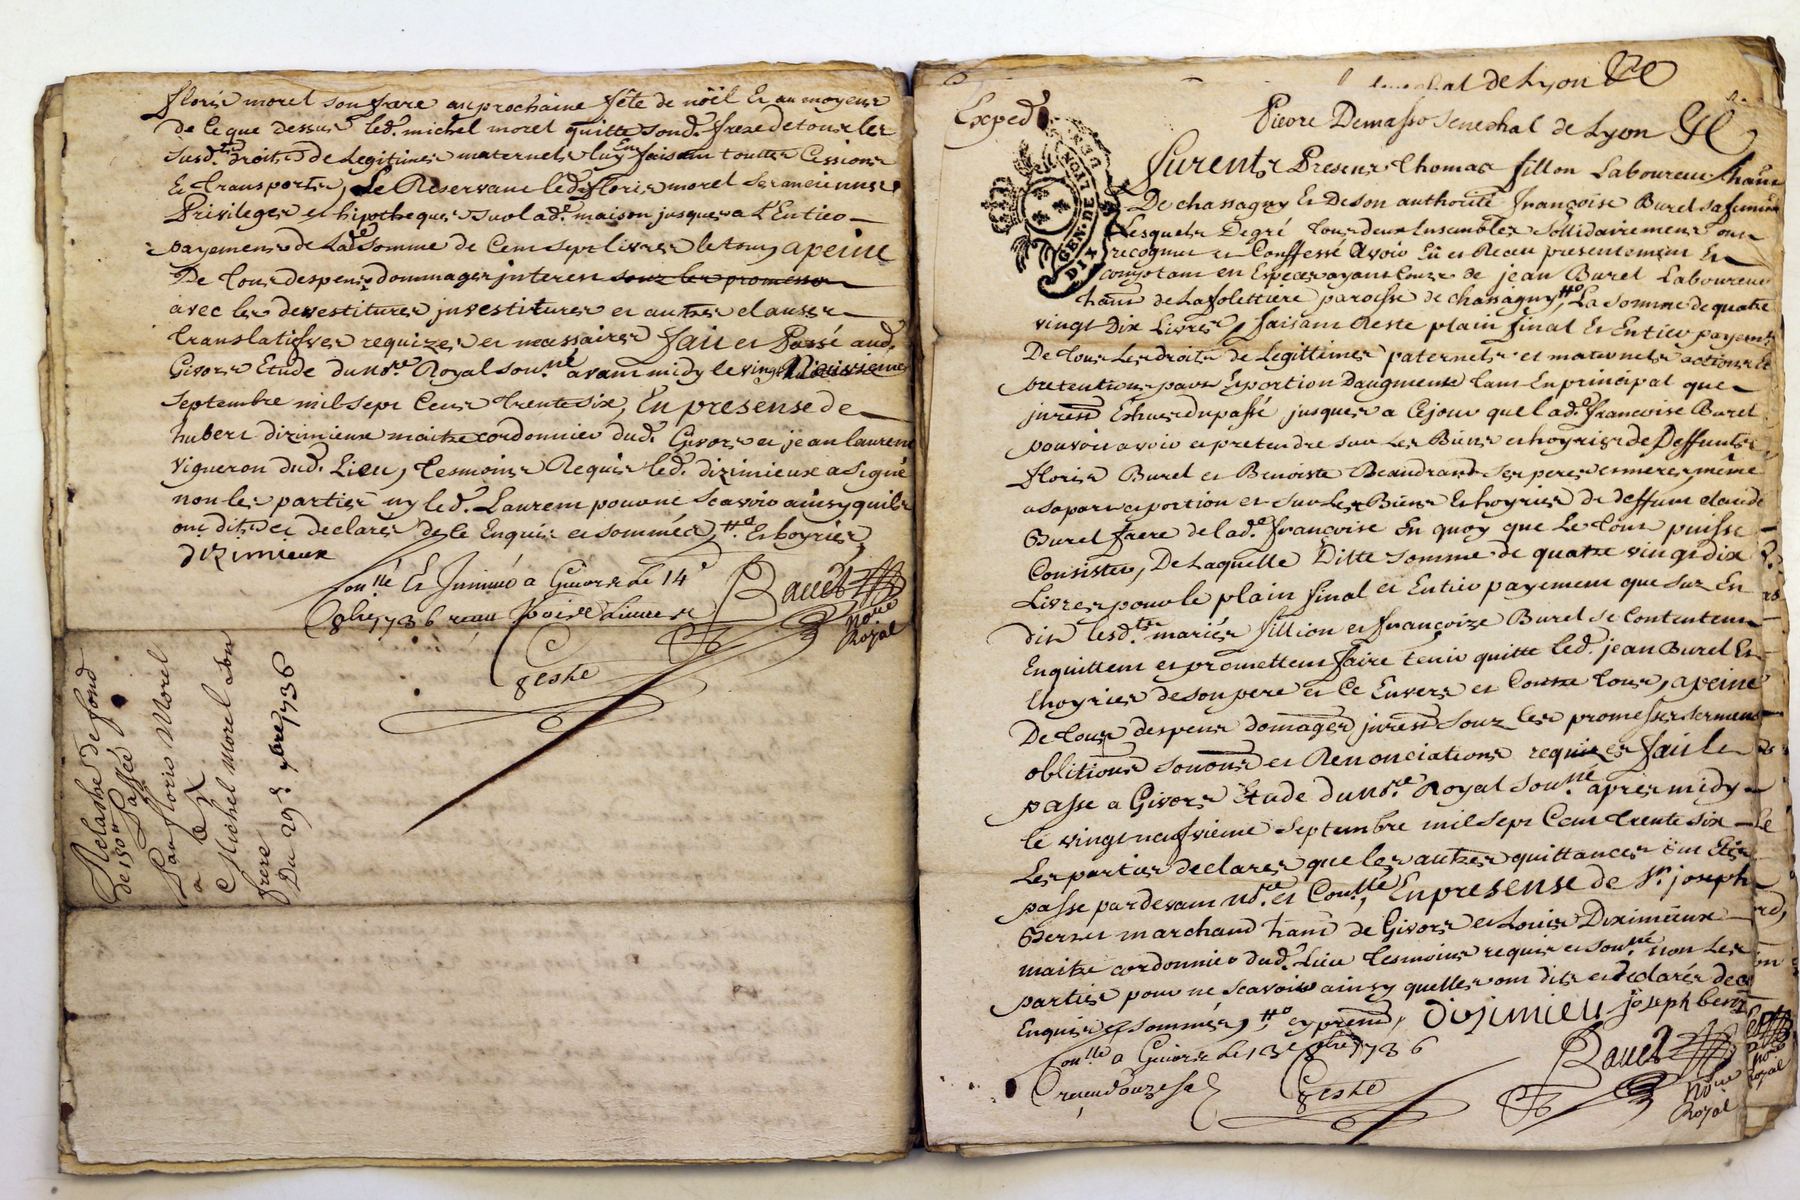 floris morel son frere au prochaine fête de nöël Et au moyens
de Ce que dessus led. michel morel quitte sond. frere de tous les
susd. droits de Legitimes maternels luy En faisant touttes Cessions
Et transports, Se Reservant led. floris morel ses anciennes
Privileges et hipotheques sur lad. maison jusques a L'Entier
payement de Lad. Somme de Cent sept livres le tout a peine
De tous despens dommages interest souz les promesses
avec les devestitures investitures et autres clauses
translatifves requizes et nessaires fait et Passé aud.
Givors Etude du nore. Royal sousné. avant midy le vingt neuvieme
septembre mil sept Cent trente six, En presense de
hubert dizimieux maitre cordonnier dud. Givors et jean laurent
vigneron dud. Lieu, tesmoins Requis led. dizimieux a signé
non les parties ny led. Laurent pour ne scavoir ainsy quils
ont dits et declarés de ce Enquis et sommés, Et hoyries
dizimieux
Conllé Et Insinué a Givors le 14e
8bre 1736 receu livres
Bauet
Nore
Royal
Geshe
Relasche de fond
de 150 ll Passée
Par floris Morel
a
Michel Morel Son
frere
Du 29e 7bre 1736
senechal de Lyon
Pierre Demasso Seneshal de Lyon
Exped
GEN. DE LYON
DIX
furents Presens Thomas fillon Laboureur hant
De chassagny Et De son authorité françoise Burel sa femme
Lesquels De gré tous deux Ensembles sollidairement ont
recognu et Conffessé avoir Eü et Receu presentement En
comptant en Especes ayant Cours de jean Burel Laboureur
hant de Lafolettiere paroisse de chassagny, La somme de quatre
vingt Dix Livres faisant Reste plain final Et Entier payemt
De tous Les droits de Legittimes paternels et maternels actions Et
pretentions pars Et portion Daugment tant En principal que
interest Eshus du passé jusques a Ce jour que lad. francoise Burel
pouvoit avoir et pretendre sur Les Biens et hoyries de Deffunts
floris Burel et Benoiste Beaudrand Ses pere et mere, même
a sa part et portion et sur Les Biens Et hoyries de deffunt claude
Burel frere de lad. françoise En quoy que Le tout puisse
Consister, De Laquelle Ditte somme de quatre vingt dix
Livres pour le plain final et Entier payement que sur En
dit lesd. mariés fillion et françoise Burel se Contentent
En quittent et promettent faire tenir quitte led. jean Burel Et
hoyries de son pere et Ce Envers et Contre tous, a peine
De tous despens domages interest Souz les promesses serment
oblitions et Renonciations requizes fait Et
passe a Givors Etude du nore. Royal sousné. apres midy
le vingt neufvieme Septembre mil sept Cent trente six
Les parties declares que les autres quittances ont Etés
passé pardevant nore. et En presense de Sr. joseph
Bernes marchand hant de Givors et Louis Dizimieux
maitre cordonnier dud. Lieu tesmoins requis et sousné non Les
parties pour ne scavoir ainsy quelles ont dits et declarés de ce
Enquis et sommés,
dizimieu
joseph
Conllé a Givors Le 13e 8bre 1736
receu douze sols
Geshe
Bauet
Nore
Royal
Nore
Royal